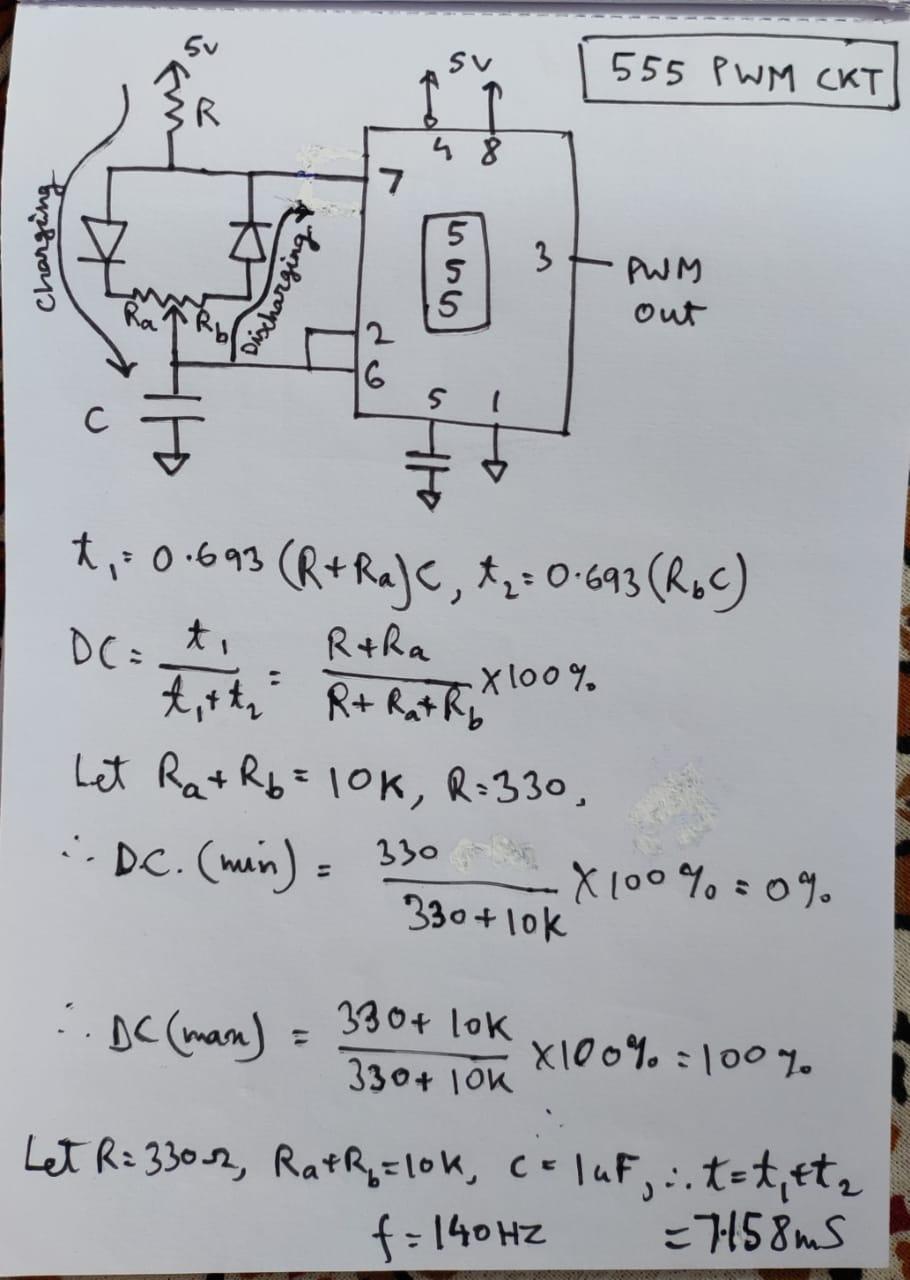 555 PWM CKT
5v
R
5v
4 8
7
5
5
5
3
PWM
out
2
6
5 1
Charging
Discharging
Ra
Rb
C
t₁=0.693(R+Ra)C, t₂=0.693(RbC)
DC= t₁ = R+Ra
t₁+t₂ R+Ra+Rb X100%
Let Ra+Rb=10K, R=330,
∴ D.C.(min) = 330
330+10K X100%=0%
∴ DC(max) = 330+10K
330+10K X100%=100%
Let R=330Ω, Ra+Rb=10K, C=1uF, ∴ t=t₁+t₂
f=140HZ =7.158mS